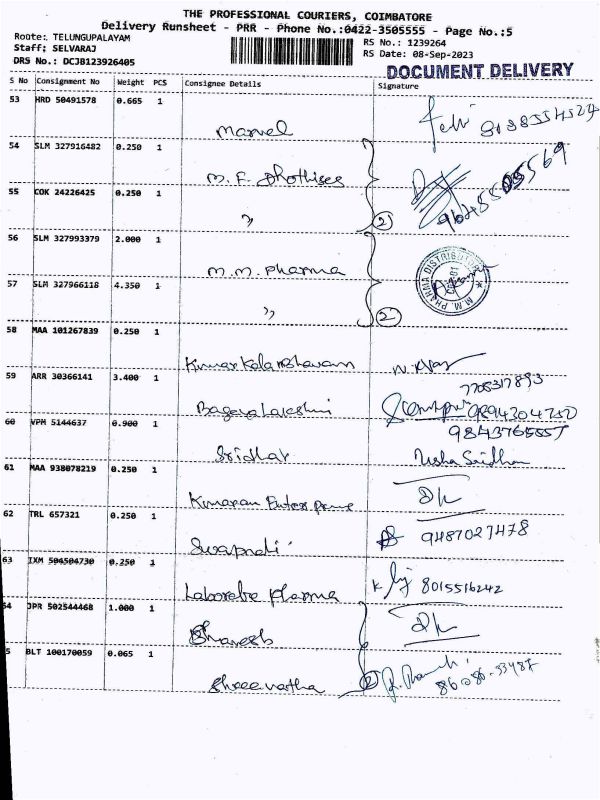 THE PROFESSIONAL COURIERS, COIMBATORE
Delivery Runsheet - PRR - Phone No.:0422-3505555 - Page No.:5
Route: TELUNGUPALAYAM
RS No.: 1239264
Staff: SELVARAJ
RS Date: 08-Sep-2023
DRS No.: DCJB123926405
DOCUMENT DELIVERY
S No Consignment No Weight PCS Consignee Details Signature
53 HRD 50491578 0.665 1
Marvel
54 SLM 327916482 0.250 1
M. F.
55 COK 24226425 0.250 1
" 2
56 SLM 327993379 2.000 1
M.M. Pharma
M.M. PHARMA DISTRIBUTORS
57 SLM 327966118 4.350 1
" 2
58 MAA 101267839 0.250 1
59 ARR 30366141 3.400 1
7708317893
9894304750
60 VPM 5144637 0.900 1
9843765557
Sridhar Usha Sridhar
61 MAA 938078219 0.250 1
Kumaran Enterprise
62 TRL 657321 0.250 1
9487027478
63 IXM 504504730 0.250 1
Pharma 8015516242
54 JPR 502544468 1.000 1
Bhavesh
5 BLT 100170059 0.065 1
2